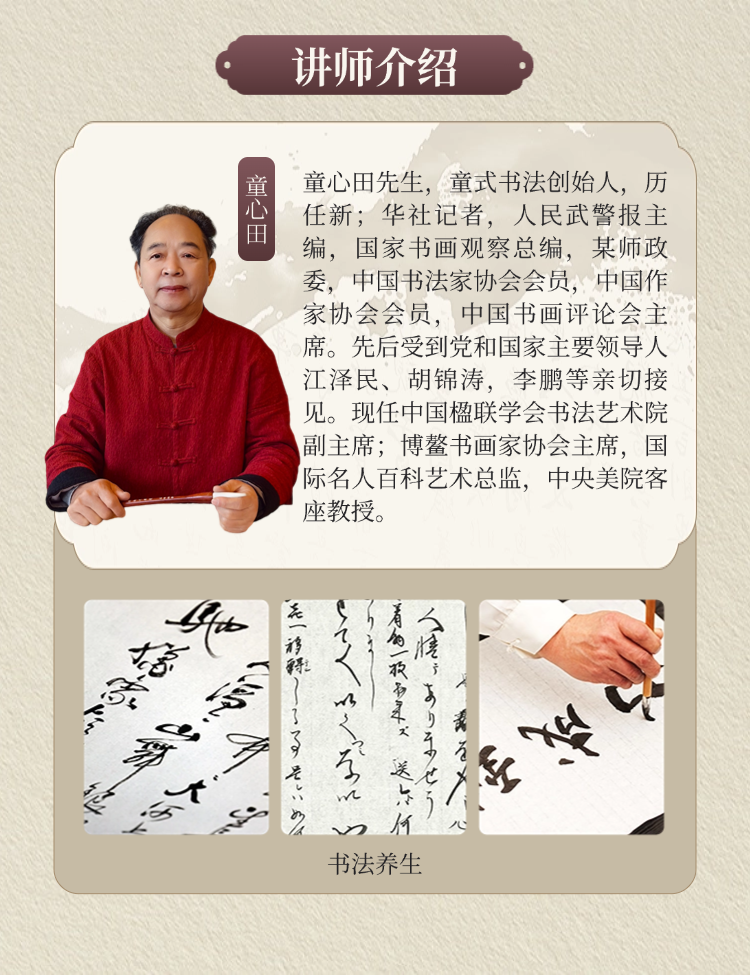 讲师介绍
童心田
童心田先生，童式书法创始人，历
任新；华社记者，人民武警报主
编，国家书画观察总编，某师政
委，中国书法家协会会员，中国作
家协会会员，中国书画评论会主
席。先后受到党和国家主要领导人
江泽民、胡锦涛，李鹏等亲切接
见。现任中国楹联学会书法艺术院
副主席；博鳌书画家协会主席，国
际名人百科艺术总监，中央美院客
座教授。
书法养生